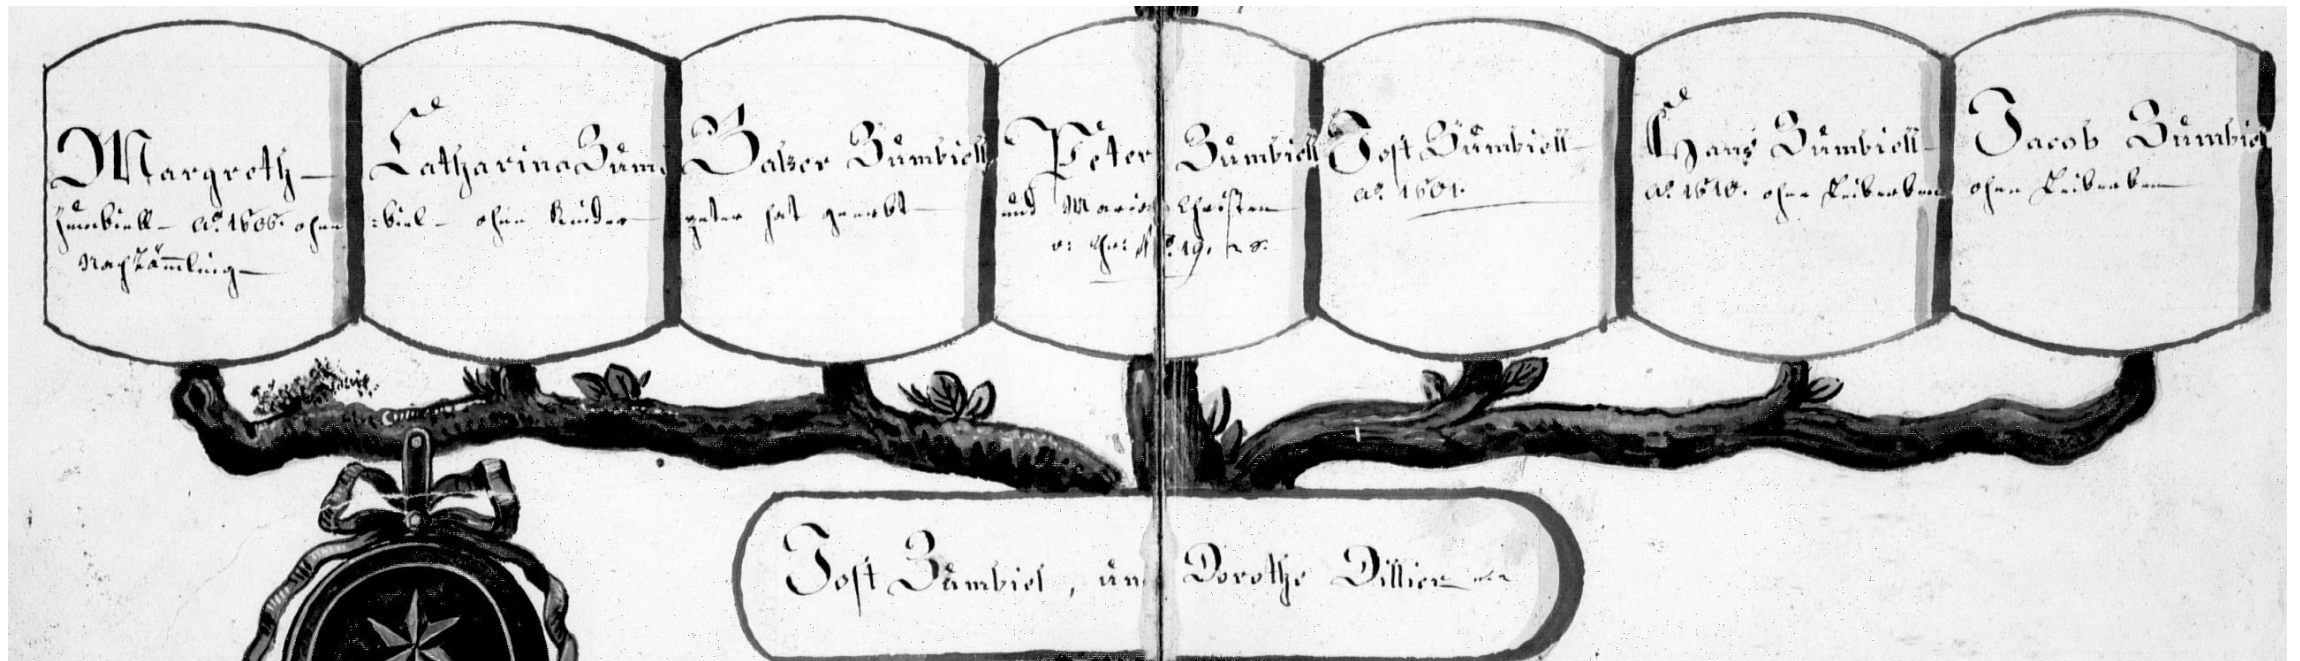 Margreth
Zumbiell Aº. 1606. ohne
Nachkömling
Catharina Zum
:biel ohne Kinder
Balzer Zumbiell
peter hat geerbt
Peter Zumbiell
und Maria Christen
Jost Zumbiell
Aº. 1601.
Hans Zumbiell
Aº. 1618. ohne Leiberben
Jacob Zumbiel
ohne Leiberben
Jost Zumbiel, und Dorothe Dillier